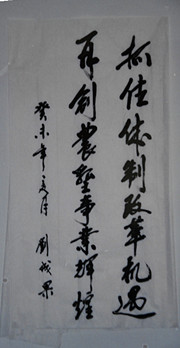 抓住体制改革机遇
再创农垦事业辉煌
癸未年夏月 刘成果